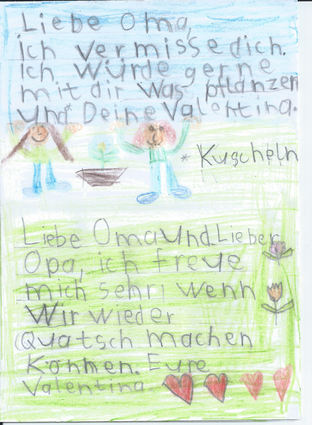 Liebe Oma,
ich vermisse dich.
Ich würde gerne
mit dir was pflanzen
und* Deine Valentina.
* Kuscheln
Liebe Oma und Lieber
Opa, ich freue
mich sehr, wenn
Wir wieder
Quatsch machen
können. Eure
Valentina